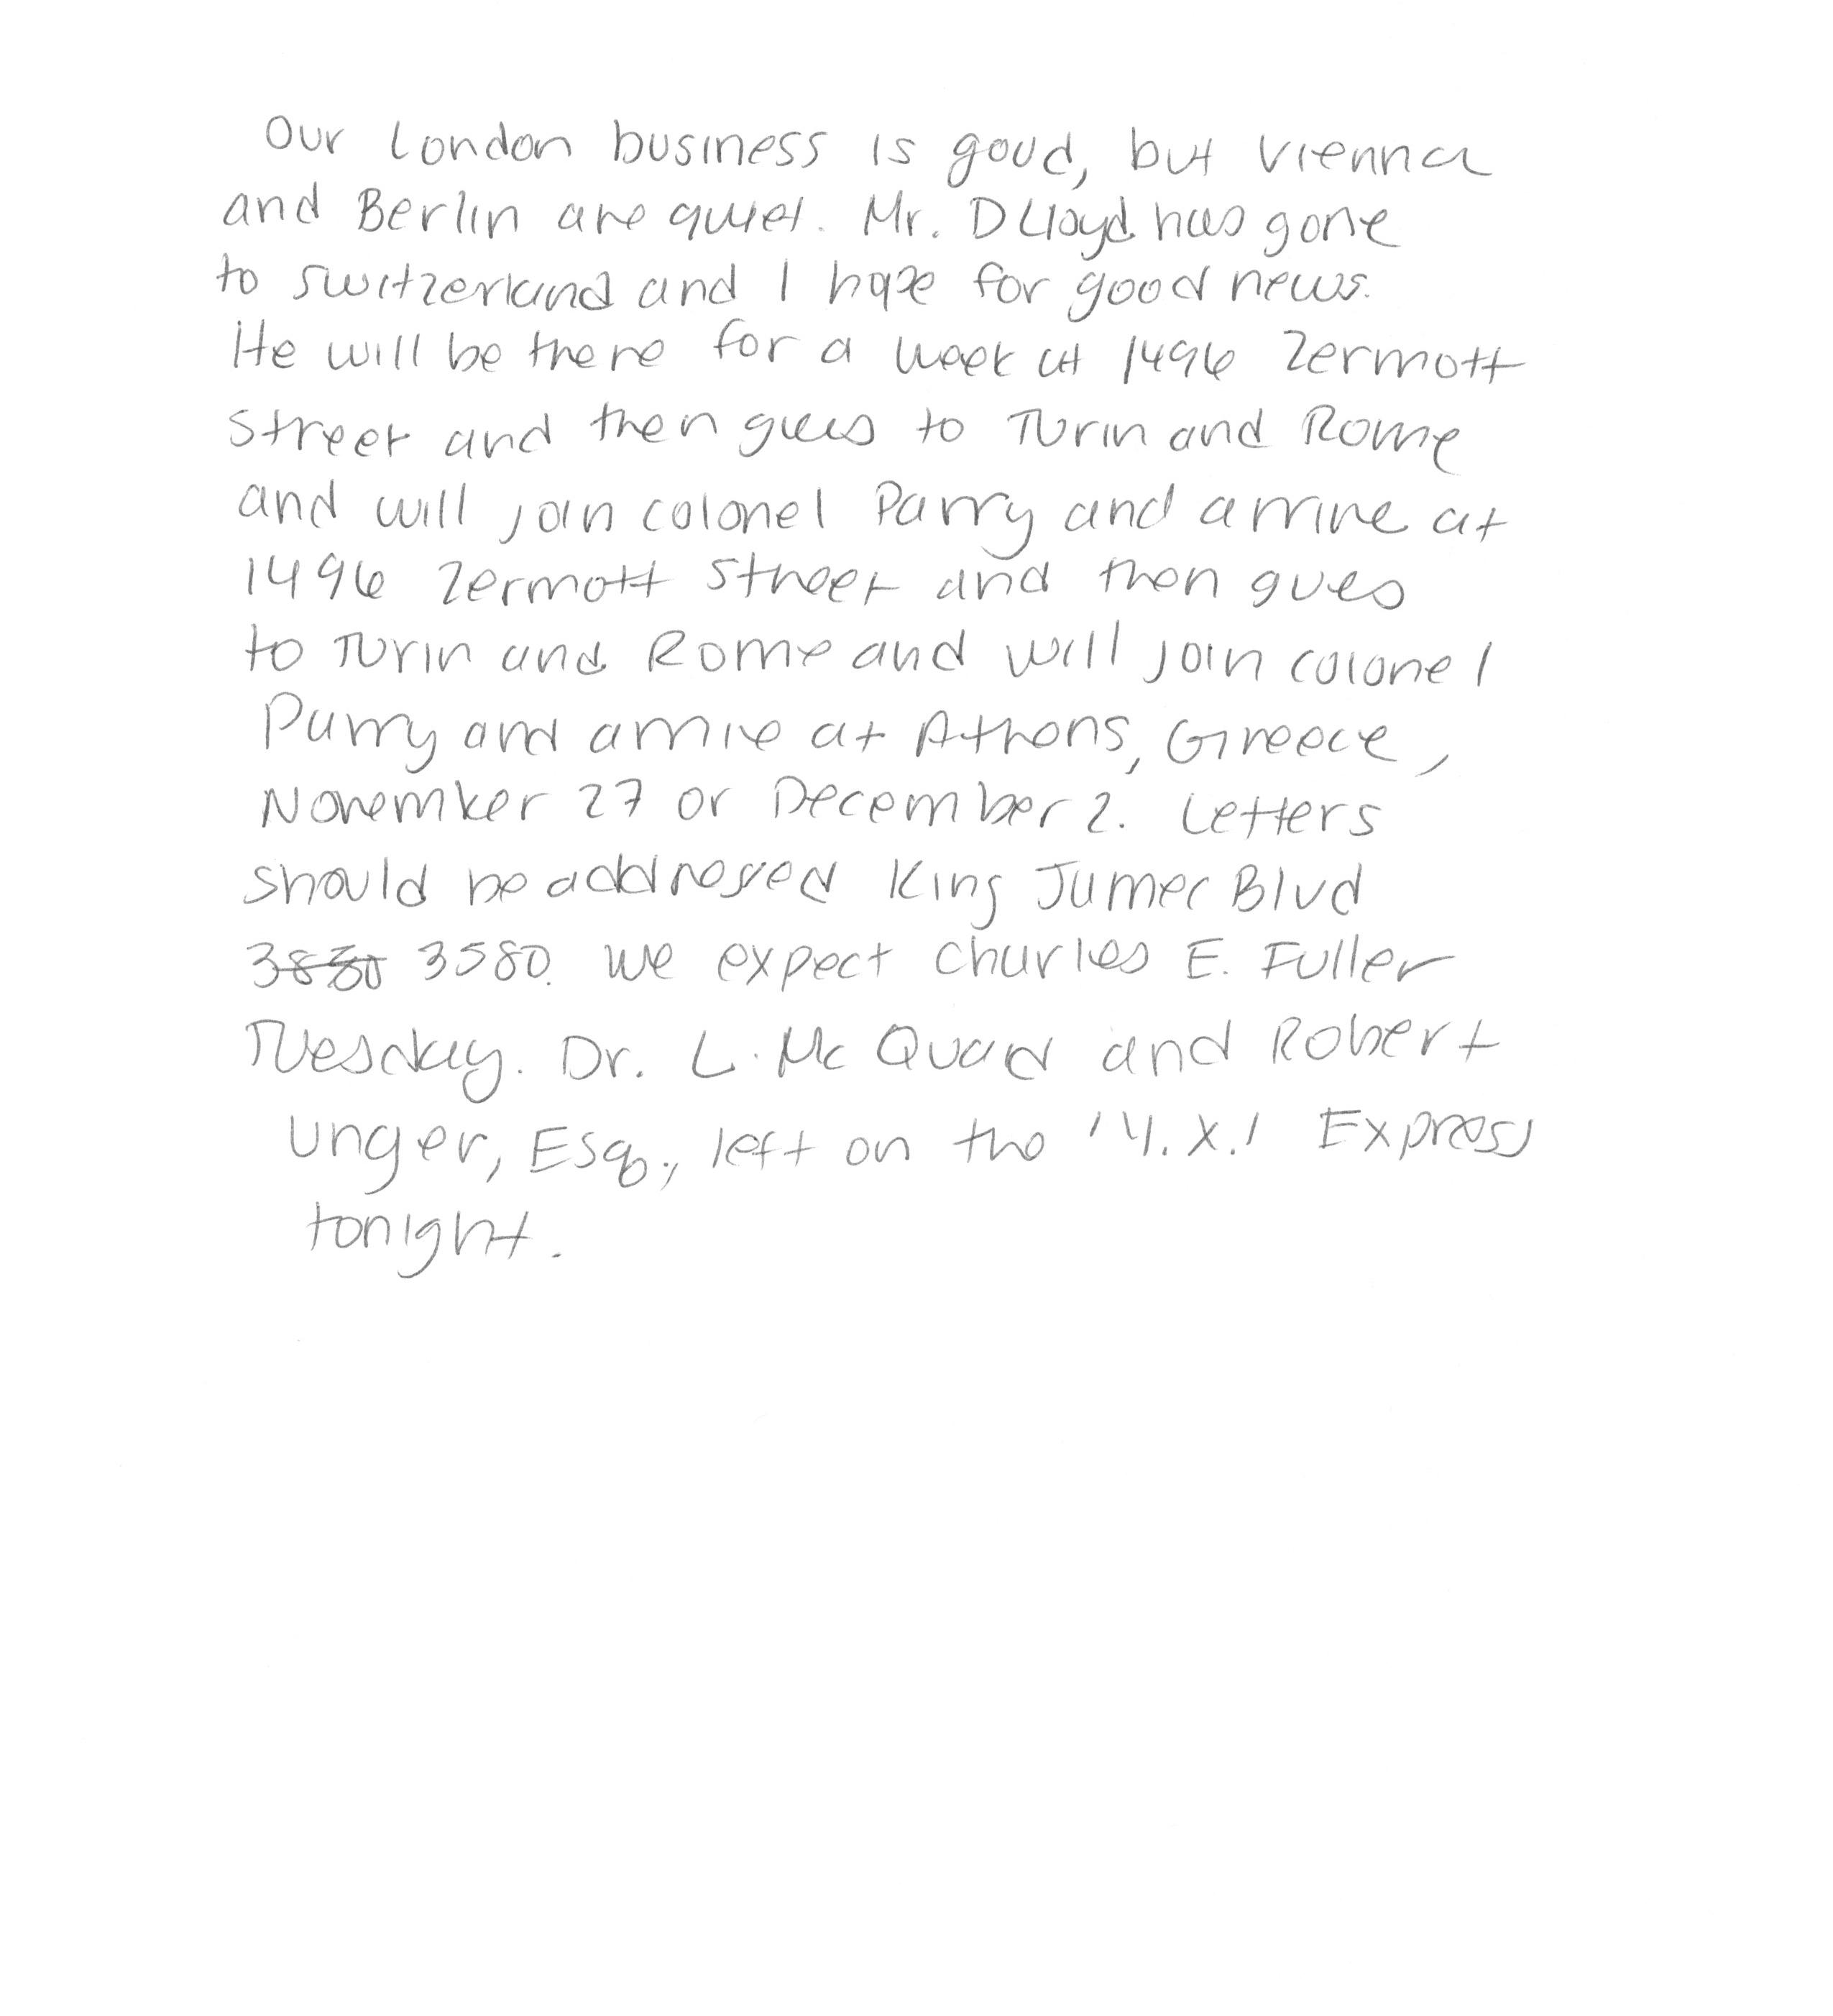 Our London business is good, but Vienna
and Berlin are quiet. Mr. D Lloyd has gone
to Switzerland and I hope for good news.
He will be there for a week at 1496 Zermott
Street and then goes to Turin and Rome
and will join Colonel Parry and arrive at
1496 Zermott Street and then goes
to Turin and Rome and will join Colonel
Parry and arrive at Athens, Greece,
November 27 or December 2. Letters
should be addressed King James Blvd
3580. We expect Charles E. Fuller
Tuesday. Dr. L. Mc Quad and Robert
Unger, Esq., left on the 'Y.X.' Express
tonight.